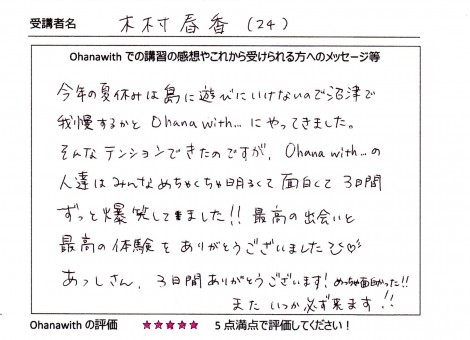 受講者名 木村 春香 (24)
Ohanawith での講習の感想やこれから受けられる方へのメッセージ等
今年の夏休みは島に遊びにいけないので沼津で
我慢するかと Ohana with… にやってきました。
そんなテンションできたのですが、Ohana with…の
人達はみんなめちゃくちゃ明るくて面白くて3日間
ずっと爆笑してました!! 最高の出会いと
最高の体験をありがとうございました
あっしさん、3日間ありがとうございます! めっちゃ面白かった!!
また いつか必ず来ます!!
Ohanawith の評価 ★★★★★ 5点満点で評価してください!